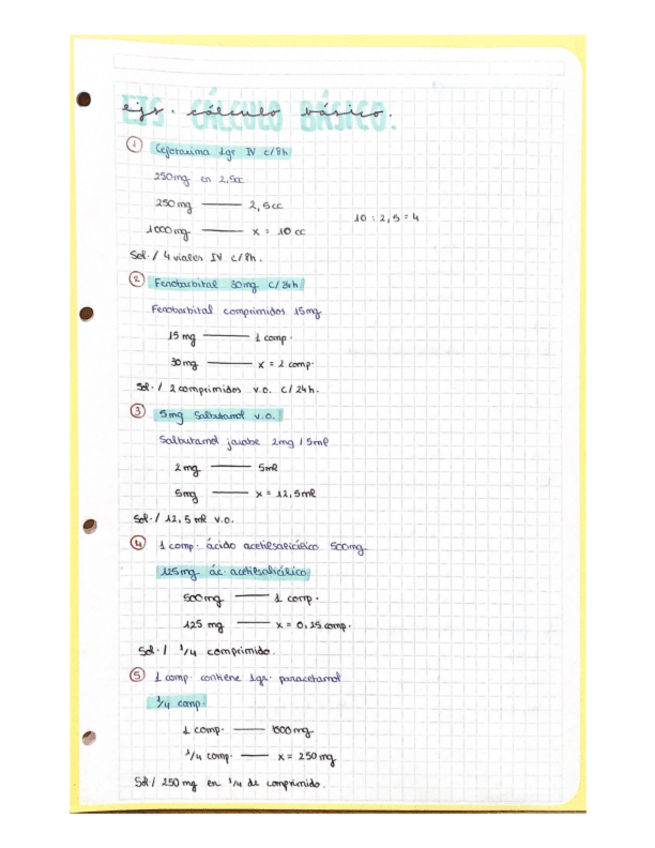 EJS CÁLCULO BÁSICO.
ejs. cálculo básico.
1 Cefotaxima 1gr IV c/8h
250mg en 2,5cc
250mg — 2,5cc
10 : 2,5 = 4
1000mg — x = 10 cc
Sol./ 4 viales IV c/8h.
2 Fenobarbital 30mg c/24h
Fenobarbital comprimidos 15mg
15 mg — 1 comp.
30mg — x = 2 comp.
Sol./ 2 comprimidos v.o. c/24h.
3 5mg Salbutamol v.o.
Salbutamol jarabe 2mg/5ml
2mg — 5ml
5mg — x = 12,5ml
Sol./ 12,5 ml v.o.
4 1 comp. ácido acetilsalicílico 500mg
125mg ác. acetilsalicílico
500mg — 1 comp.
125 mg — x = 0,25 comp.
Sol./ 1/4 comprimido.
5 1 comp. contiene 1gr. paracetamol
1/4 comp.
1 comp. — 1000mg
1/4 comp. — x = 250mg
Sol/ 250 mg en 1/4 de comprimido.